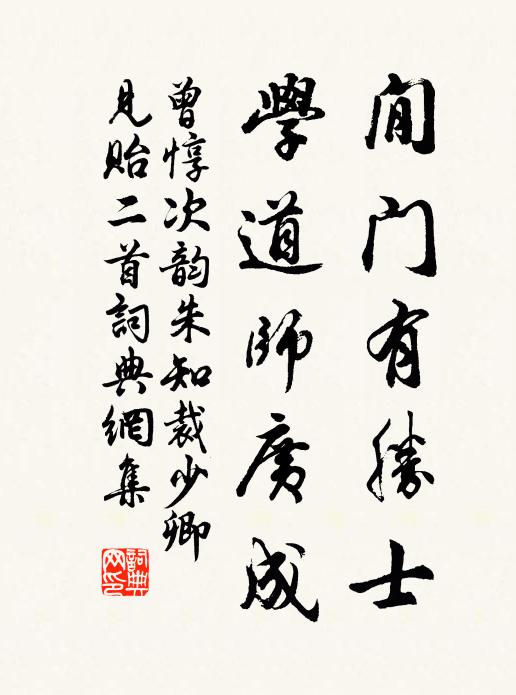 閒門有勝士
學道師廣成
曾惇次韵朱知裁少卿
見貽二首詞典網集
詞典
网印